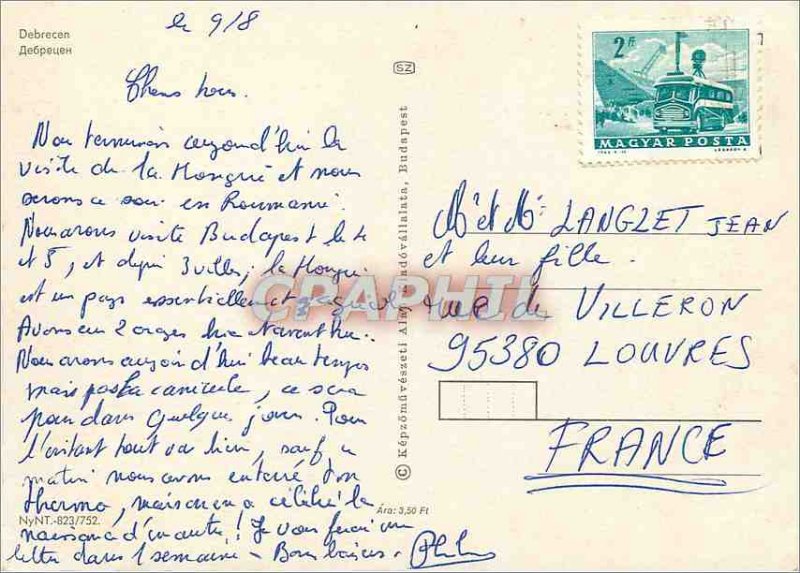 Debrecen
Дебрецен
le 9/8
Chers tous.
Nous terminons aujourd'hui la
visite de la Hongrie et nous
serons ce soir en Roumanie.
Nous avons visité Budapest le 4
et 5, et depuis 3 villes, la Hongrie
est un pays essentiellement
Avons eu 2 orages hier et avant hier.
Nous avons aujourd'hui beau temps
mais pas la canicule, ce sera
pour dans quelques jours. Pour
l'instant tout va bien, sauf, ce
matin nous avons enterré un
thermo, mais on en a célébré la
naissance d'un autre! Je vous ferai une
lettre dans 1 semaine - Bons baisers.
NyNT.-823/752.
Ára: 3,50 Ft
SZ
© Képzőművészeti Alap Kiadóvállalata, Budapest
2 Ft
MAGYAR POSTA
Mr et Me LANGLET JEAN
et leur fille.
rue de VILLERON
95380 LOUVRES
FRANCE
CRAPHIL